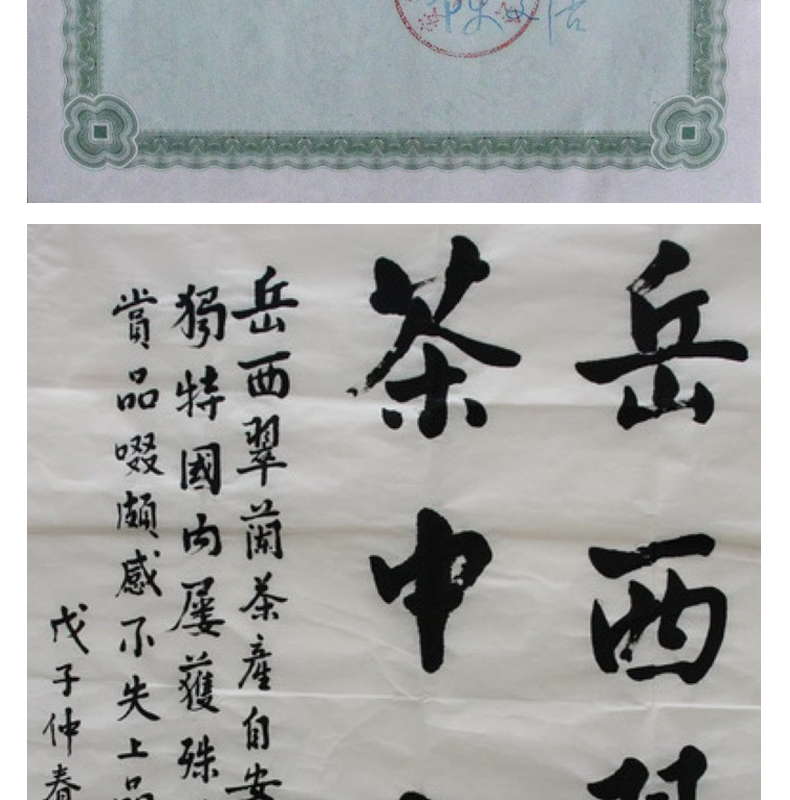 岳西
茶中
岳西翠蘭茶產自安
獨特國内屢獲殊
賞品啜頗感不失上品
戊子仲春